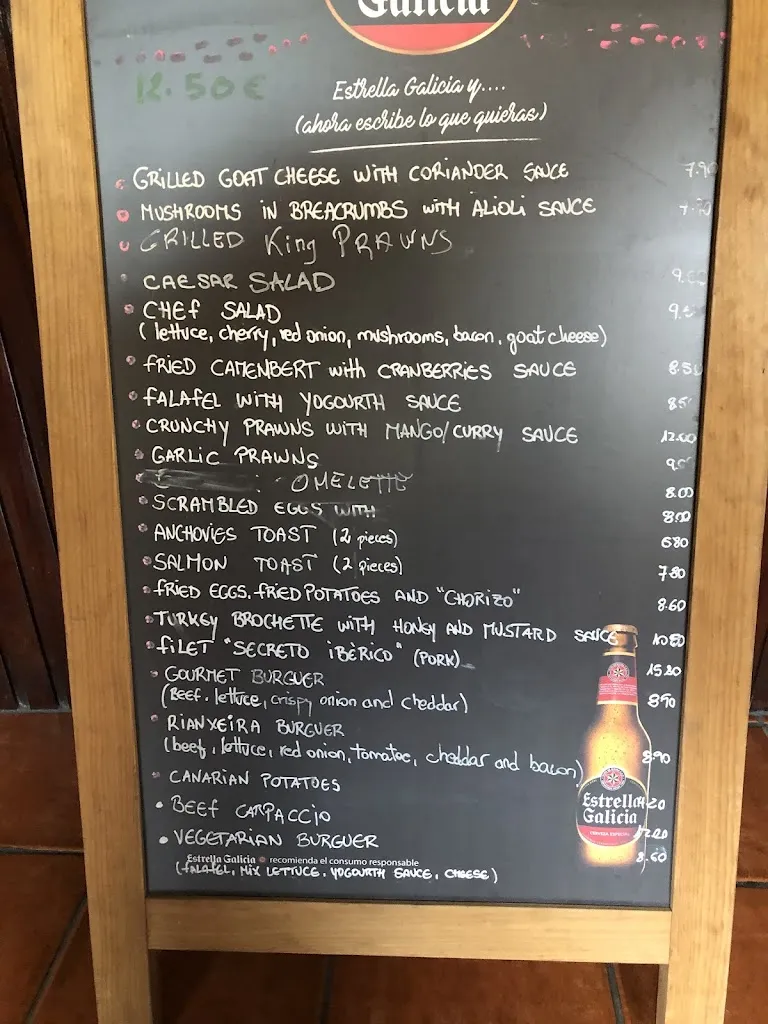 Galicia
12.50€
Estrella Galicia y....
(ahora escribe lo que quieras)
GRILLED GOAT CHEESE WITH CORIANDER SAUCE 7.90
MUSHROOMS IN BREACRUMBS WITH ALIOLI SAUCE
GRILLED King PRAWNS
CAESAR SALAD
CHEF SALAD
(lettuce, cherry, red onion, mushrooms, bacon, goat cheese)
FRIED CAMENBERT with CRANBERRIES SAUCE 8.50
FALAFEL WITH YOGOURTH SAUCE
CRUNCHY PRAWNS WITH MANGO/CURRY SAUCE 12.00
GARLIC PRAWNS
OMELETTE 8.00
SCRAMBLED EGGS WITH 8.00
ANCHOVIES TOAST (2 pieces) 6.80
SALMON TOAST (2 pieces) 7.80
FRIED EGGS. FRIED POTATOES AND "CHORIZO" 8.60
TURKEY BROCHETTE WITH HONEY AND MUSTARD SAUCE 10.80
FILET "SECRETO IBÈRICO" (PORK) 15.20
GOURMET BURGUER 8.90
(BEEF. lettuce, crispy onion and cheddar)
RIANXEIRA BURGUER
(beef, lettuce, red onion, tomatoe, cheddar and bacon) 8.90
CANARIAN POTATOES 4.20
BEEF CARPACCIO
VEGETARIAN BURGUER 8.60
Estrella Galicia recomienda el consumo responsable
(FALAFEL, MIX LETTUCE. YOGOURTH SAUCE, CHEESE)
Estrella
Galicia
CERVEZA ESPECIAL